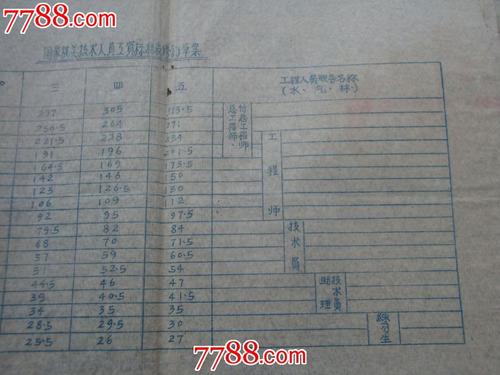 7788.com
国家机关技术人员工资标准 草案
三 四 五 工程人员职务名称
(水、气、林)
305
264
254.5
221.5 238 254
131 196 201.5
164.5 169 173.5
142 146 150
123 126.5 130
106 109 112
92 95 97.5
79.5 82 84
68 70 71.5
57 59 60.5
51 52.5 54
44.5 46 47
39 40.5 41.5
34 35 35
28.5 29.5 30
25.5 26 27
总工程师、
付总工程师
工程师
技术员
助理
技术员
练习生
7788.com
7788.com